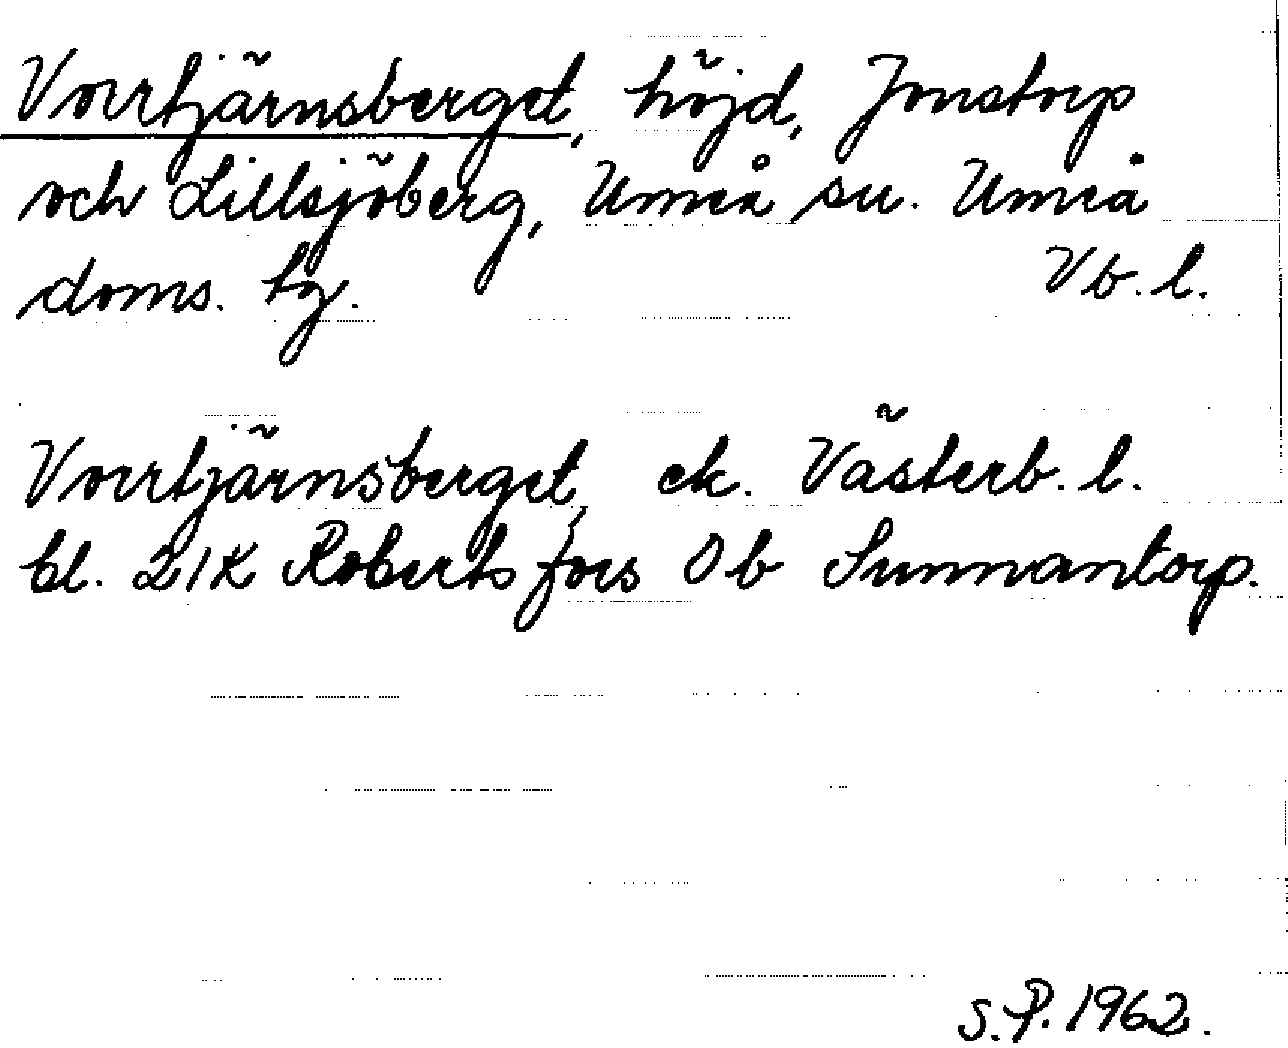 Vorrtjärnsberget, höjd, Jonstorp
och Lillsjöberg, Umeå sn. Umeå
doms. tg. Vb. l.
Vorrtjärnsberget, ek. Västerb. l.
bl. 21K Robertsfors Ob Sunnantorp.
S.P. 1962.